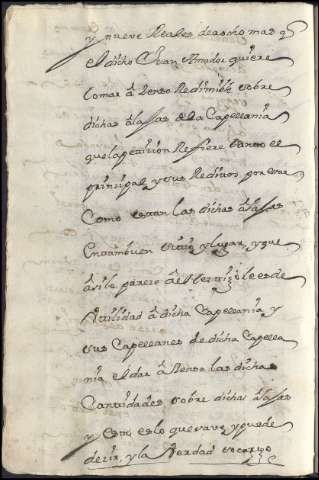 y nueve Reales de a ocho mas q
el dicho Juan quiere
tomar a senso Redimible sobre
dichas casas de la Capellania
que la peticion Reffiere tanto el
principal y sus Reditos, por estar
Como estan las dichas casas
En tan buen sitio y lugar, y que
asi le parece a el testigo le es de
Utilidad a dicha Capellania y
sus Capellanes de dicha Capella
nia el dar a senso las dichas
Cantidades sobre dichas casas
y esto es lo que save y puede
decir, y la Verdad so cargo